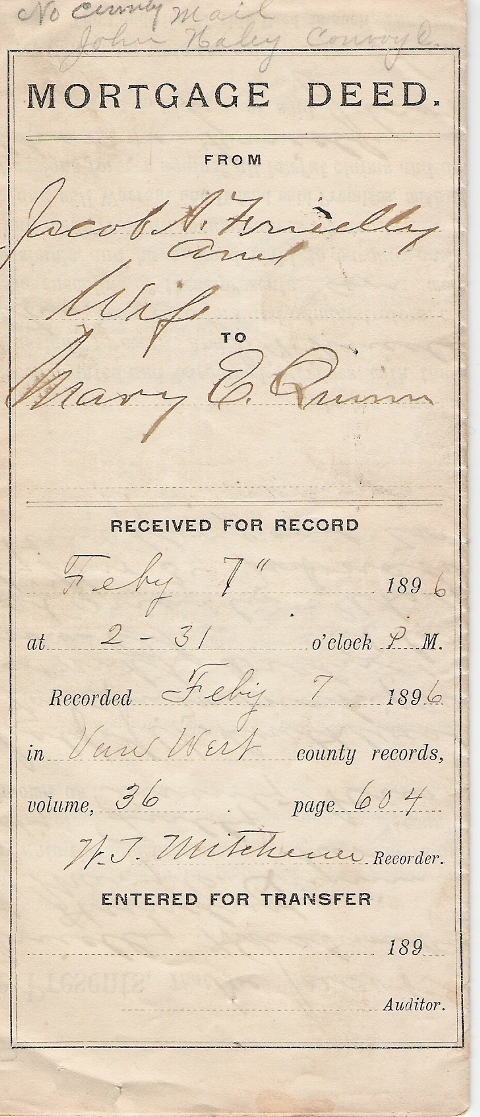 No County Mail
John Haley Convoy O.
MORTGAGE DEED.
FROM
Jacob A. Friedly
and
Wife
TO
Mary E. Quinn
RECEIVED FOR RECORD
Feby 7" 1896
at 2-31 o'clock P M.
Recorded Feby 7 1896
in Van Wert county records,
volume, 36 page 604
W. T. Mitchener Recorder.
ENTERED FOR TRANSFER
189
Auditor.